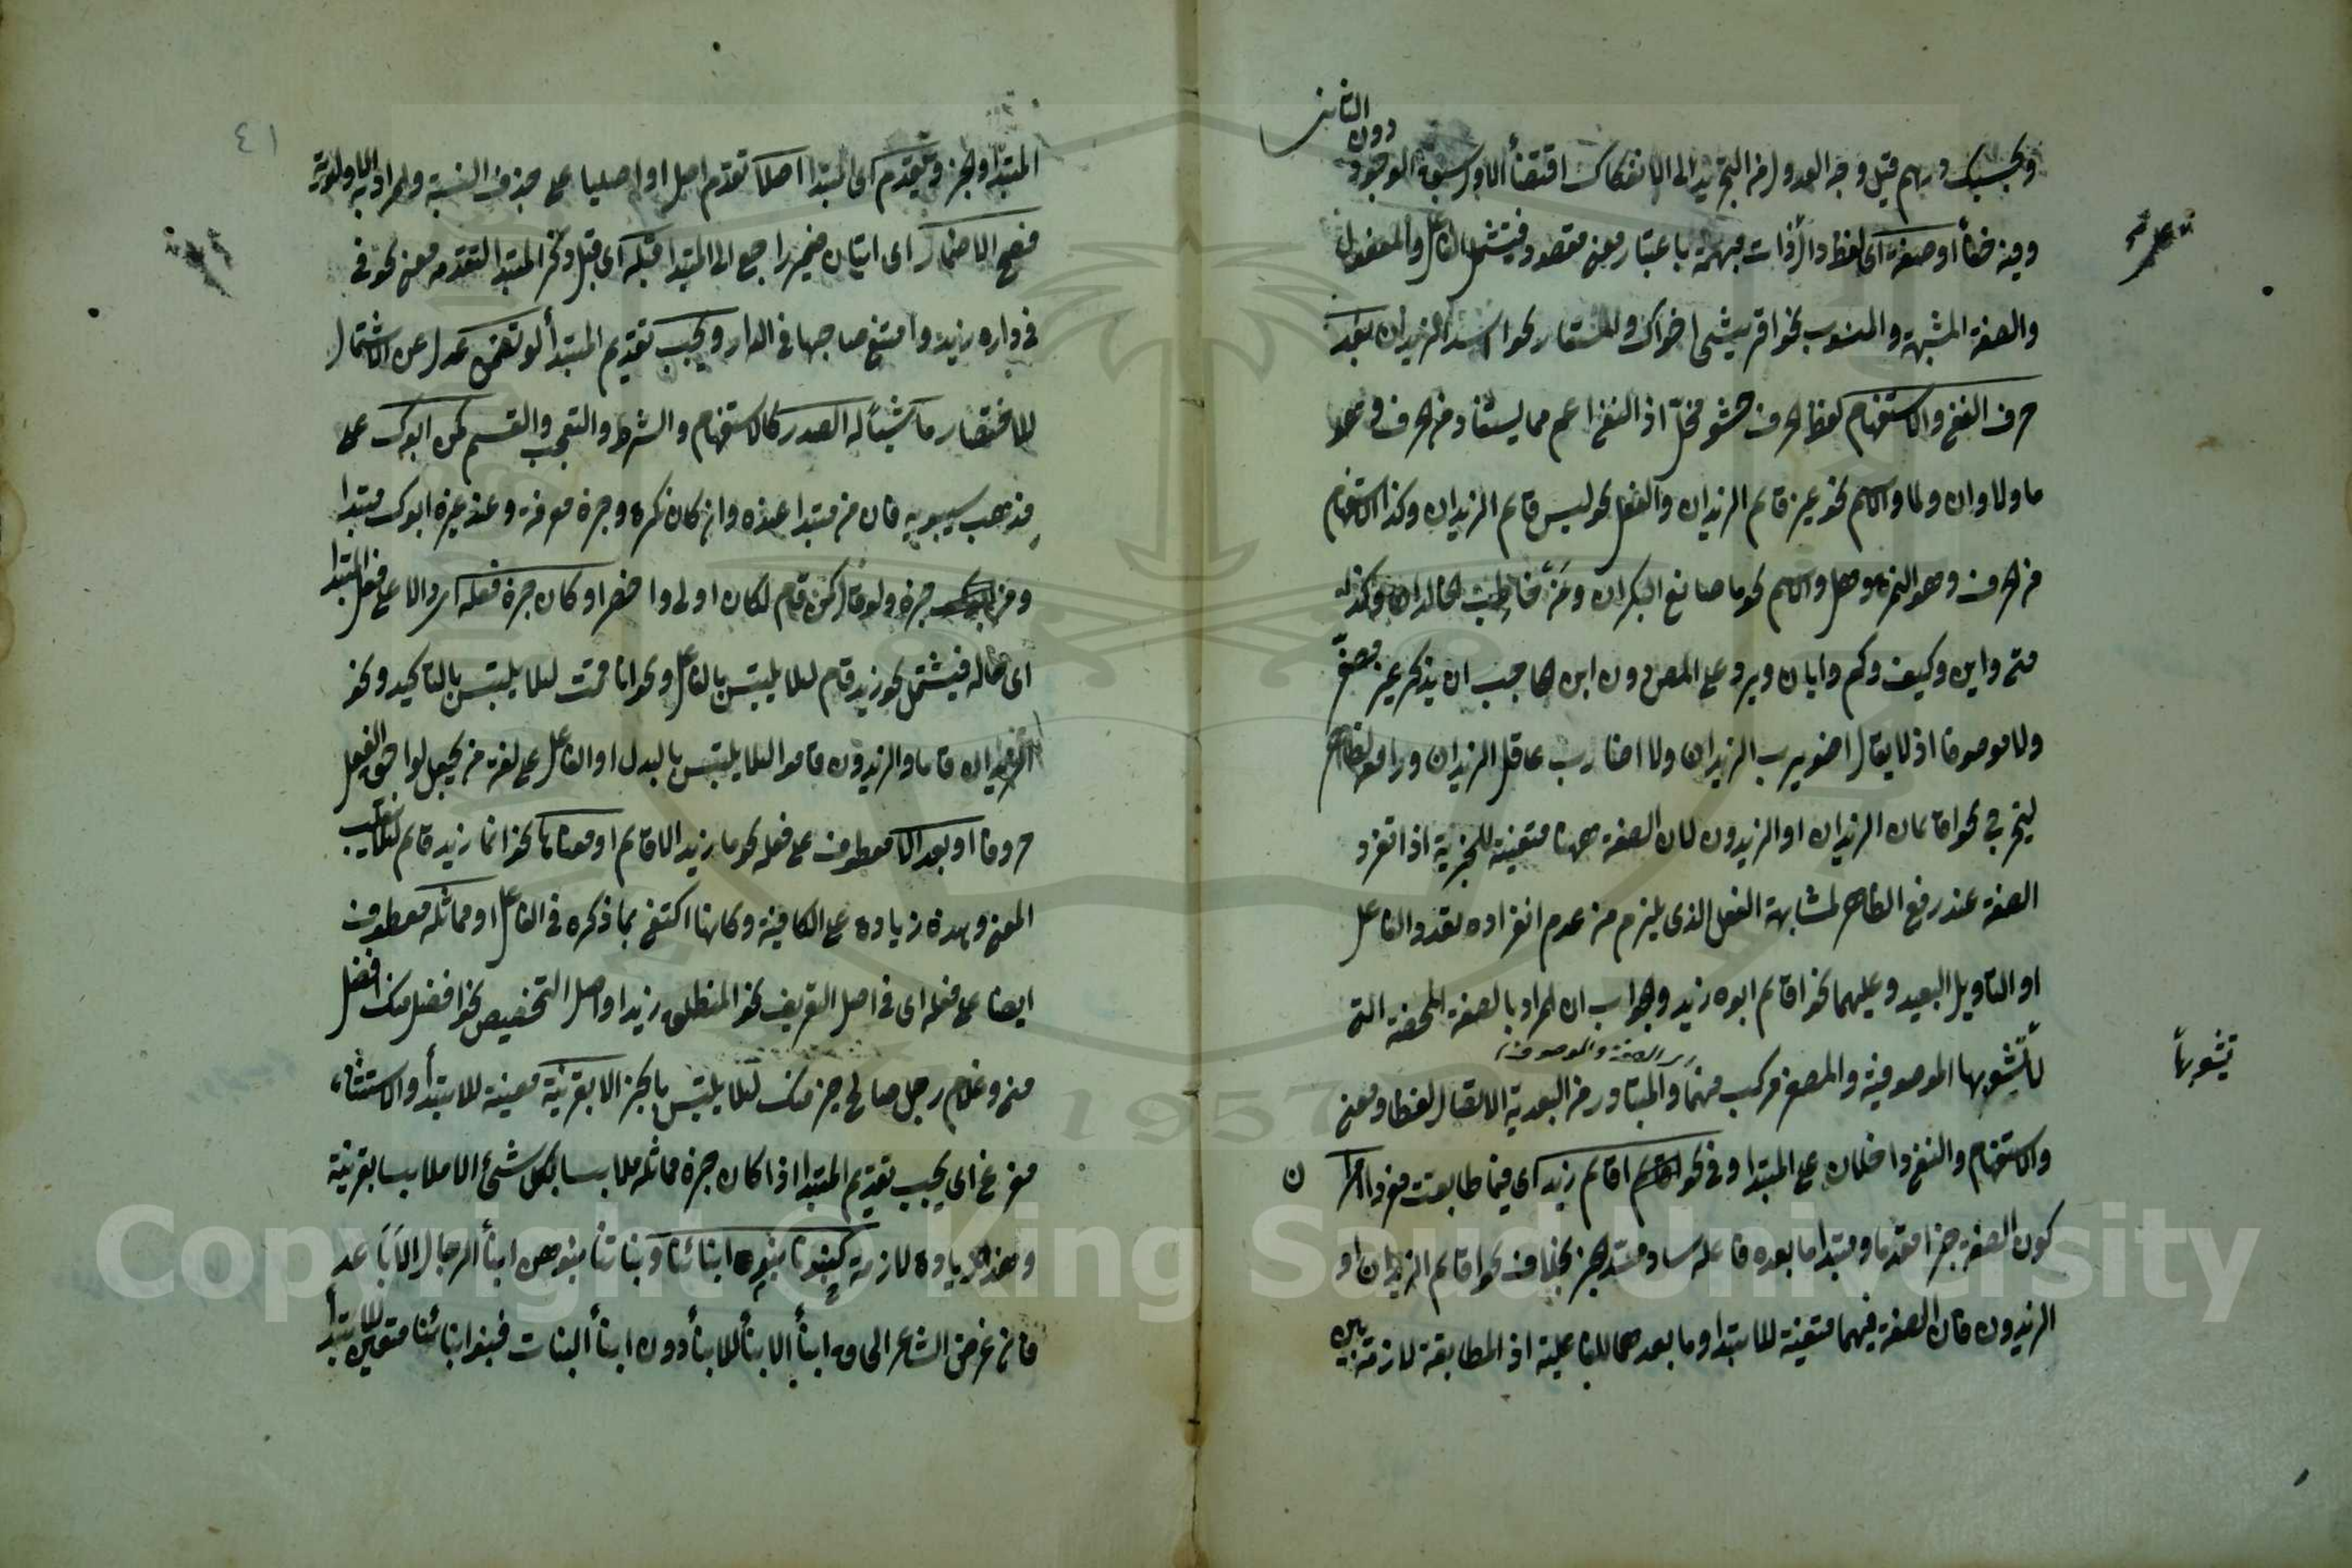 دون الثاني
وبحسبك درهم قيل وجه العدول من التجريد الى الانفكاك اقتضأ الاول سبق الوجود
وفيه خفأ أو صفة اى لفظ دال لذات مبهمة باعتبار معنى مقصود فيشتمل الفاعل والمفعول
والصفة المشبهة والمنسوب نحو اقريشى اخواك والمستعار نحو اسد الزيدان بعد
حرف النفى والاستفهام لفظ الحرف حشو مخل اذ النفى اعم مما يستفاد من الحرف وهو
ما ولا وان ولما والاسم نحو غير قايم الزيدان والفعل نحو ليس قايم الزيدان وكذا الاستفهام
من الحرف وهو الهمزة وهل والاسم نحو ما صانع البكران ومن مخاطب الخالدان وكذا
متى واين وكيف وكم وايان ويرد على المص دون ابن الحاجب ان يذكر غير مصغر
ولا موصوفا اذ لا يقال اضويرب الزيدان ولا اضارب عاقل الزيدان ورافع لظاهر
ليخرج نحو اقايمان الزيدان او الزيدون لان الصفة ههنا متعينة للخبرية اذ اتفرد
الصفة عند رفع الظاهر لمشابهة الفعل الذى يلزم من عدم انفراده تعدد الفاعل
او التاويل البعيد وعليهما نحو اقايم ابوه زيد والجواب ان المراد بالصفة المحضة التى
لا تشوبها الموصوفية والمصغر مركب منهما والمتبادر من البعدية الاتصال لفظا ومعنى
اى الصفة والموصوف
تشوبها
والاستفهام والنفى داخلان على المبتدا وفى نحو اقايم زيد اى فيما طابقت مفردا
كون الصفة خبرا مقدما ومبتدا ما بعده فاعله ساد مسد الخبر بخلاف نحو اقايم الزيدان او
الزيدون فان الصفة فيهما متعينة للابتدا وما بعدهما للفاعلية اذ المطابقة لازمة بين
٤١
المبتدا والخبر وتقدم اى المبتدا اصلا تقدم اصل او اصليا على حذف النسبة والمراد به الاولوية
فصح الاضمار اى اتيان ضمير راجع الى المبتدا قبله اى قبل ذكر المبتدا لتقدمه معنى نحو فى
فى داره زيد وامتنع صاحبها فى الدار ويجب تقديم المبتدأ لو تضمن عدل عن الاشتمال
للاختصار ما شيئا له الصدر كالاستفهام والشرط والتعجب والقسم كمن ابوك على
مذهب سيبويه فان من مبتدا عنده وان كان نكرة وخبره معرفة وعند غيره ابوك مبتدا
ومن خبره ولو قال كمن قام لكان اولى واخصر او كان خبره فعله والا على فعل المبتدا
اى حاله فيشتمل نحو زيد قام لئلا يلتبس بالفاعل ونحو انا قمت لئلا يلتبس بالتاكيد ونحو
الزيدان قاما والزيدون قاموا لئلا يلتبس بالبدل او الفاعل على لغة من يجعل لواحق الفعل
حروفا او بعد الا معطوف على فعله نحو ما زيد الا قايم او معناها نحو انما زيد قايم لئلا ينقلب
المعنى وهذه زيادة على الكافية وكانها اكتفى بما ذكره فى الفاعل او مماثله معطوف
ايضا على فعله اى فى اصل التعريف نحو المنطلق زيد او اصل التخصيص نحو افضل منك افضل
منى وغلام رجل صالح خير منك لئلا يلتبس بالخبر الا بقرينة معينة للابتدأ والاستثناء
مفرغ اى يجب تقديم المبتدا اذا كان خبره مماثله ملابسا بكل شئ الا ملابسا بقرينة
وهذه زيادة لازمة كبنونا بنو ابنائنا وبناتنا بنوهن ابنأ الرجال الاباعد
فان غرض الشاعر الحاقه ابنأ الابنأ للابنأ دون ابنأ البنات فبنو ابنائنا متعين للابتدأ